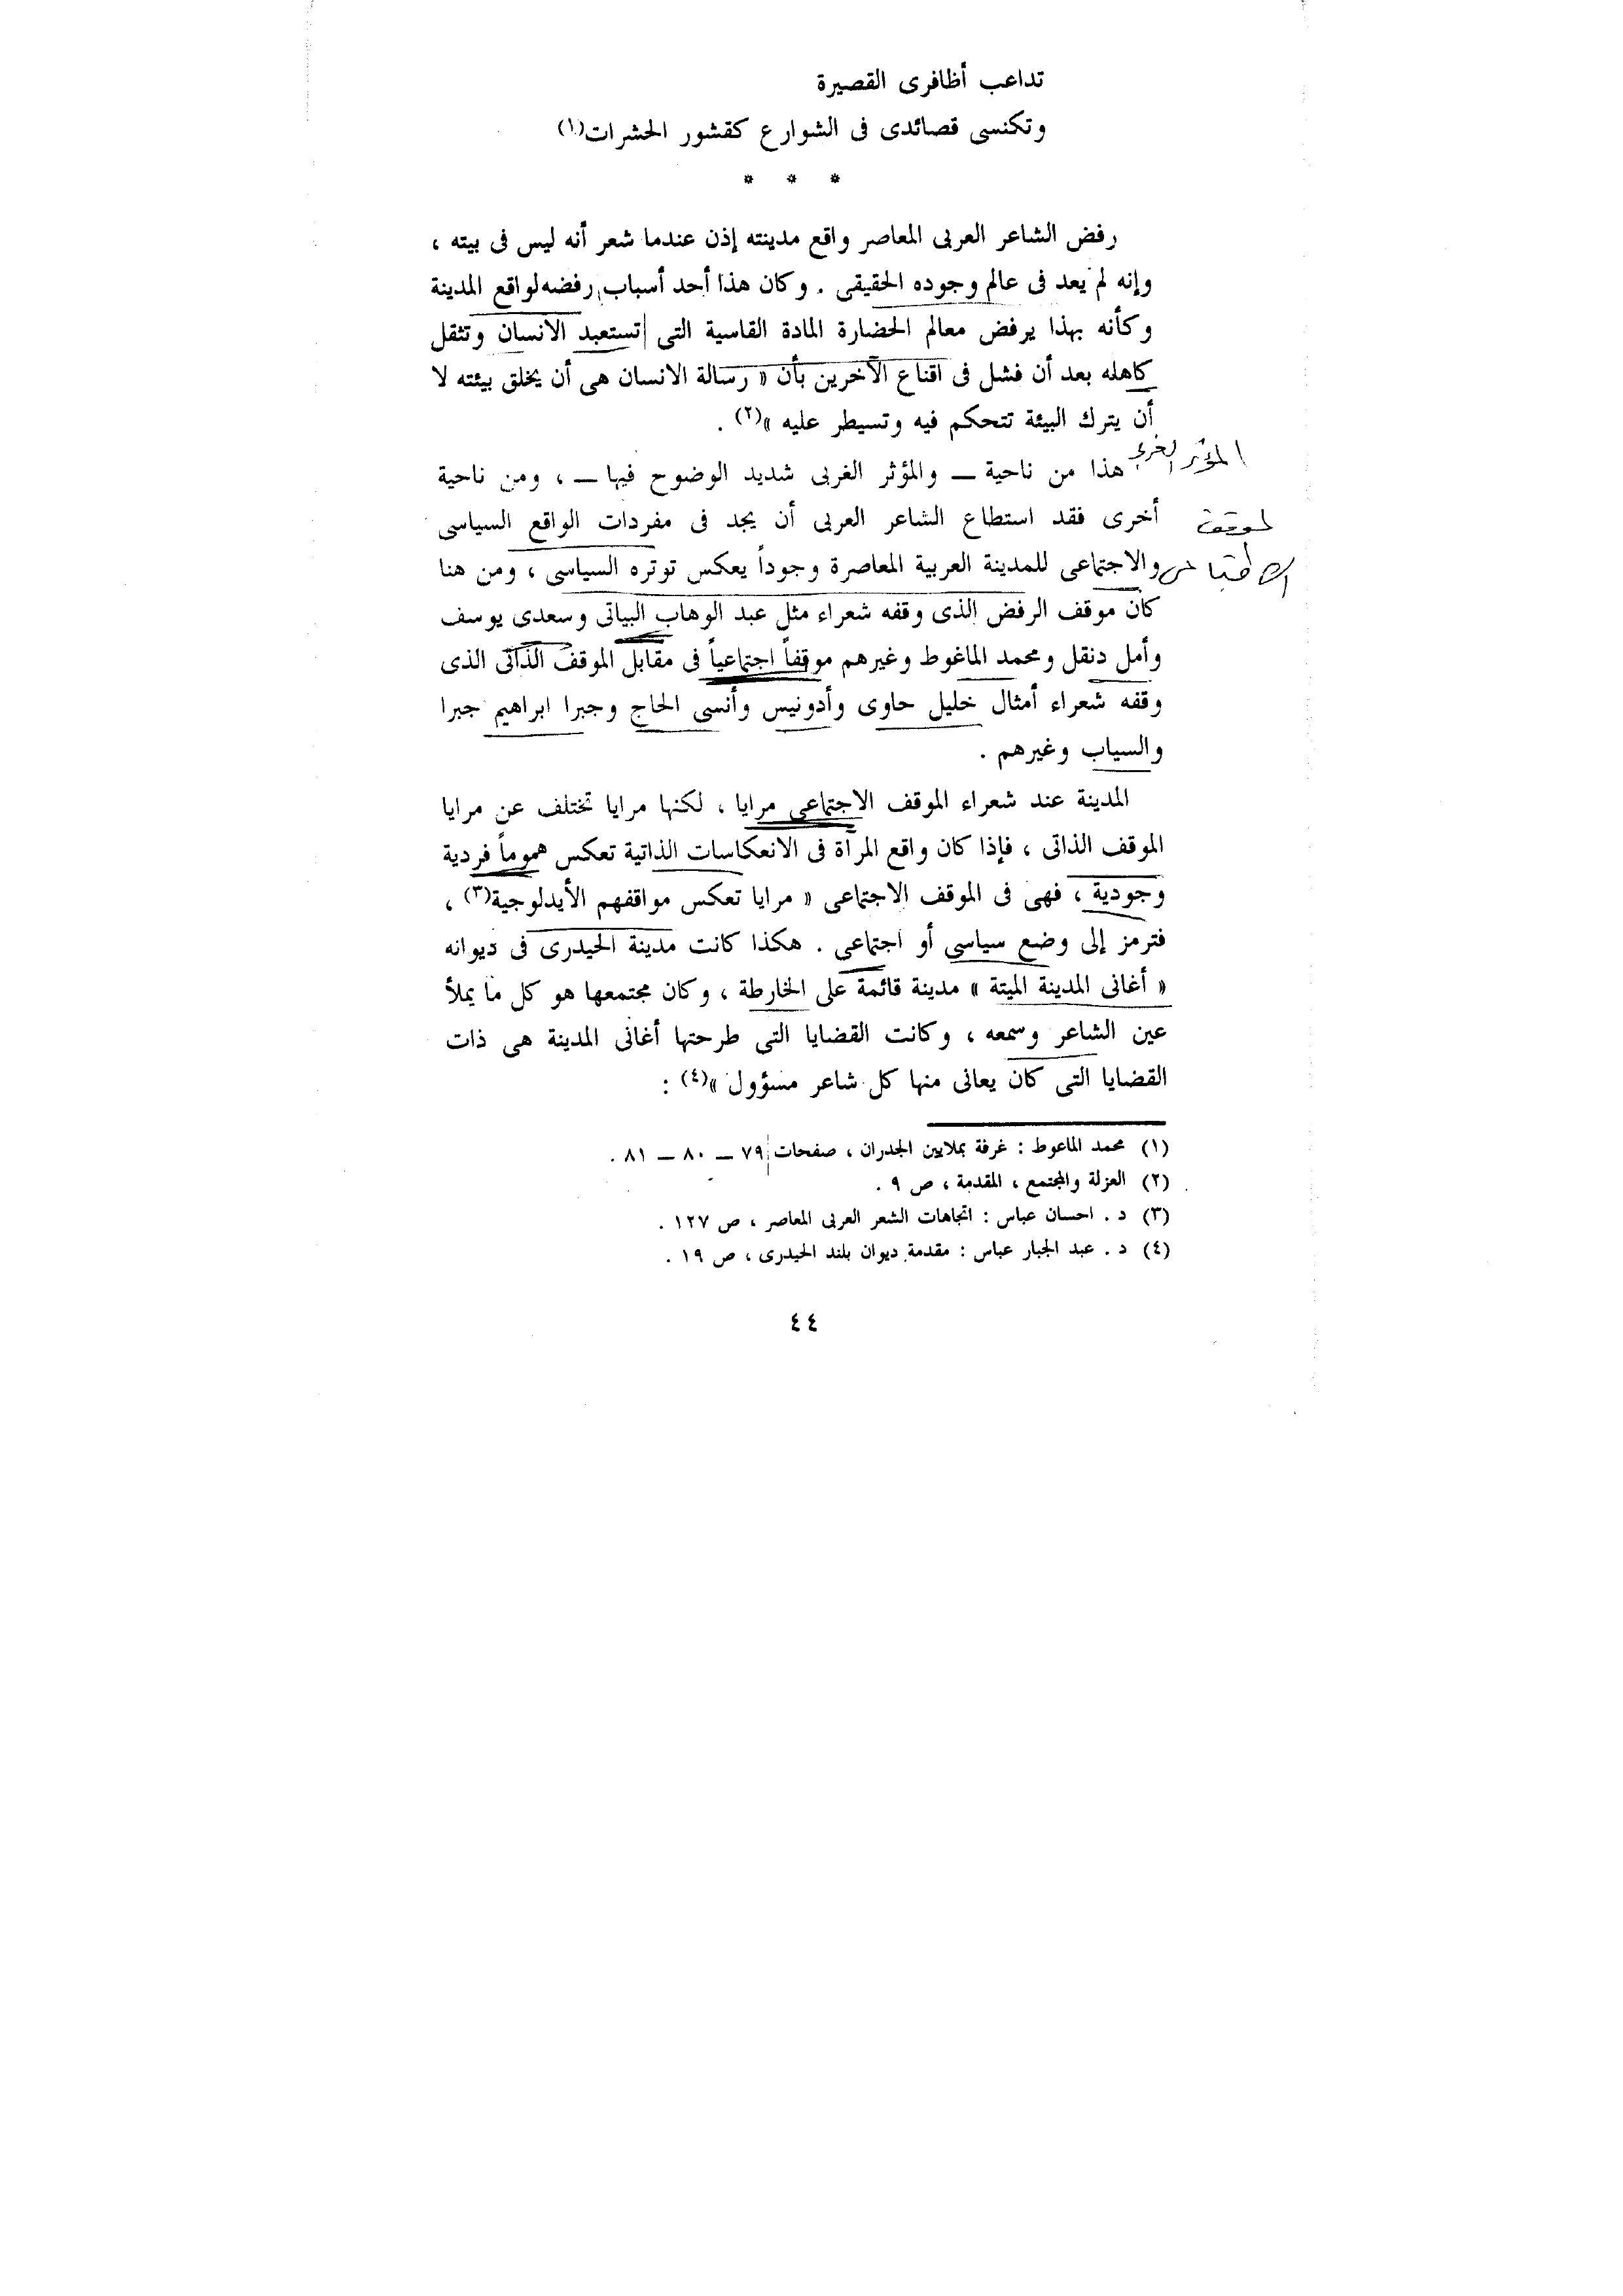 تداعب أظافرى القصيرة
وتكنسى قصائدى فى الشوارع كقشور الحشرات(١)
* * *
رفض الشاعر العربى المعاصر واقع مدينته إذن عندما شعر أنه ليس فى بيته ،
وإنه لم يعد فى عالم وجوده الحقيقى . وكان هذا أحد أسباب رفضه لواقع المدينة
وكأنه بهذا يرفض معالم الحضارة المادة القاسية التى تستعبد الانسان وتثقل
كاهله بعد أن فشل فى اقناع الآخرين بأن « رسالة الانسان هى أن يخلق بيئته لا
أن يترك البيئة تتحكم فيه وتسيطر عليه »(٢) .
المؤثر الغربي
هذا من ناحية — والمؤثر الغربى شديد الوضوح فيها — ، ومن ناحية
أخرى فقد استطاع الشاعر العربى أن يجد فى مفردات الواقع السياسى
والاجتماعى للمدينة العربية المعاصرة وجوداً يعكس توتره السياسى ، ومن هنا
كان موقف الرفض الذى وقفه شعراء مثل عبد الوهاب البياتى وسعدى يوسف
وأمل دنقل ومحمد الماغوط وغيرهم موقفاً اجتماعياً فى مقابل الموقف الذاتى الذى
وقفه شعراء أمثال خليل حاوى وأدونيس وأنسى الحاج وجبرا ابراهيم جبرا
والسياب وغيرهم .
المدينة عند شعراء الموقف الاجتماعى مرايا ، لكنها مرايا تختلف عن مرايا
الموقف الذاتى ، فإذا كان واقع المرآة فى الانعكاسات الذاتية تعكس هموماً فردية
وجودية ، فهى فى الموقف الاجتماعى « مرايا تعكس مواقفهم الأيدلوجية(٣) ،
فترمز إلى وضع سياسى أو اجتماعى . هكذا كانت مدينة الحيدرى فى ديوانه
« أغانى المدينة الميتة » مدينة قائمة على الخارطة ، وكان مجتمعها هو كل ما يملأ
عين الشاعر وسمعه ، وكانت القضايا التى طرحتها أغانى المدينة هى ذات
القضايا التى كان يعانى منها كل شاعر مسؤول »(٤) :
(١) محمد الماعوط : غرفة بملايين الجدران ، صفحات ٧٩ — ٨٠ — ٨١ .
(٢) العزلة والمجتمع ، المقدمة ، ص ٩ .
(٣) د . احسان عباس : اتجاهات الشعر العربى المعاصر ، ص ١٢٧ .
(٤) د . عبد الجبار عباس : مقدمة ديوان بلند الحيدرى ، ص ١٩ .
٤٤